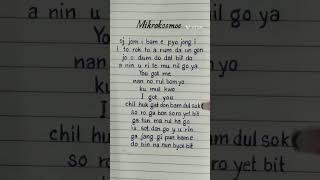 Mikrokosmos
sj jom i bam e pyo jong i
I to rok to a rum da un gon
jo o dum do dal bit do
a nin u ri te mu nil go ya
You got me
nan no rul bom yo
ku mul kwo
I got you
chil huk gat don bam dul sok
so ro ga bon so ro yet bit
ga tun ma rul ha go
is sot don go y u rin
ga jang gi pun bam e
do bin na nun byot bit
chil huk gat don bam dul sok
so ro yet bit